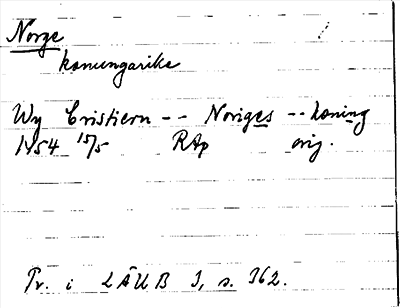 Norge
konungarike
Wy Cristiern -- Noriges -- koning
1454 15/5 RAp orig.
Tr. i LÄUB 3, s. 362.